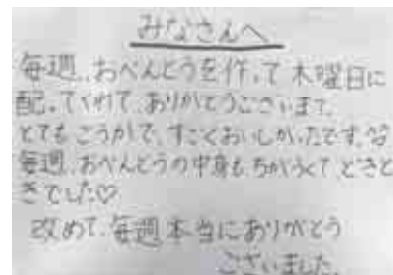 みなさんへ
毎週、おべんとうを作って木曜日に
配っていただいて、ありがとうございます。
とてもごうかで、すごくおいしかったです。
毎週、おべんとうの中身もちがうくて、どきど
きでした♡
改めて、毎週本当にありがとう
ございました。